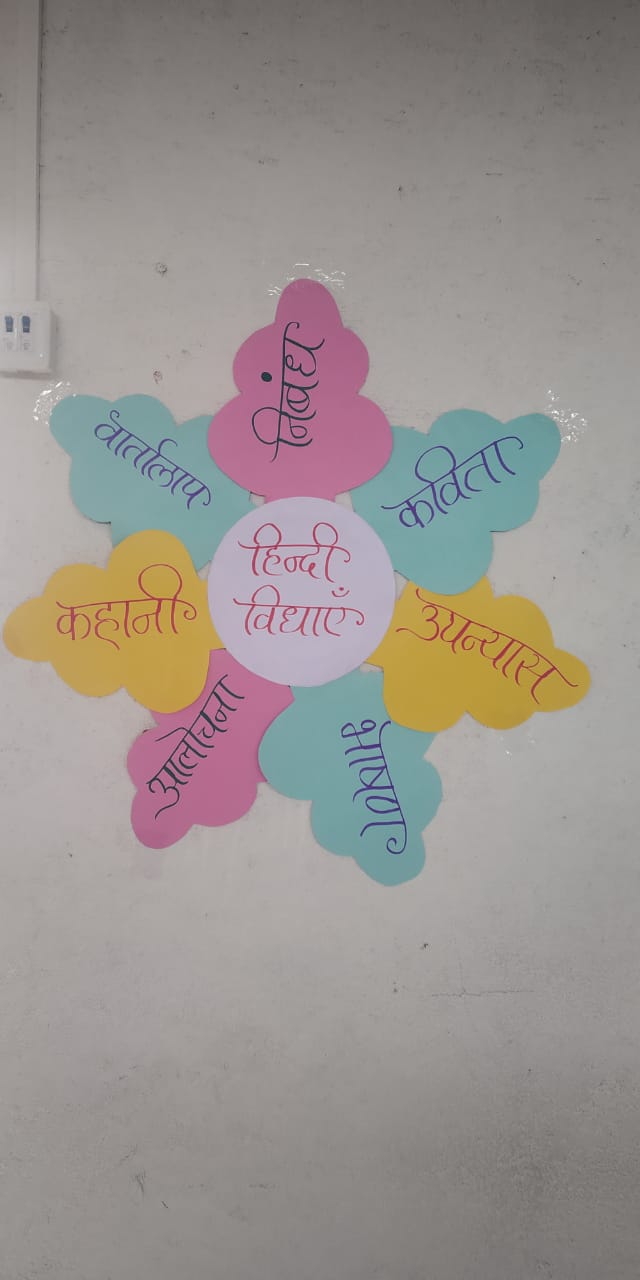 हिन्दी
विधाएँ
निबंध
कविता
उपन्यास
भाषण
आलोचना
कहानी
वार्तालाप